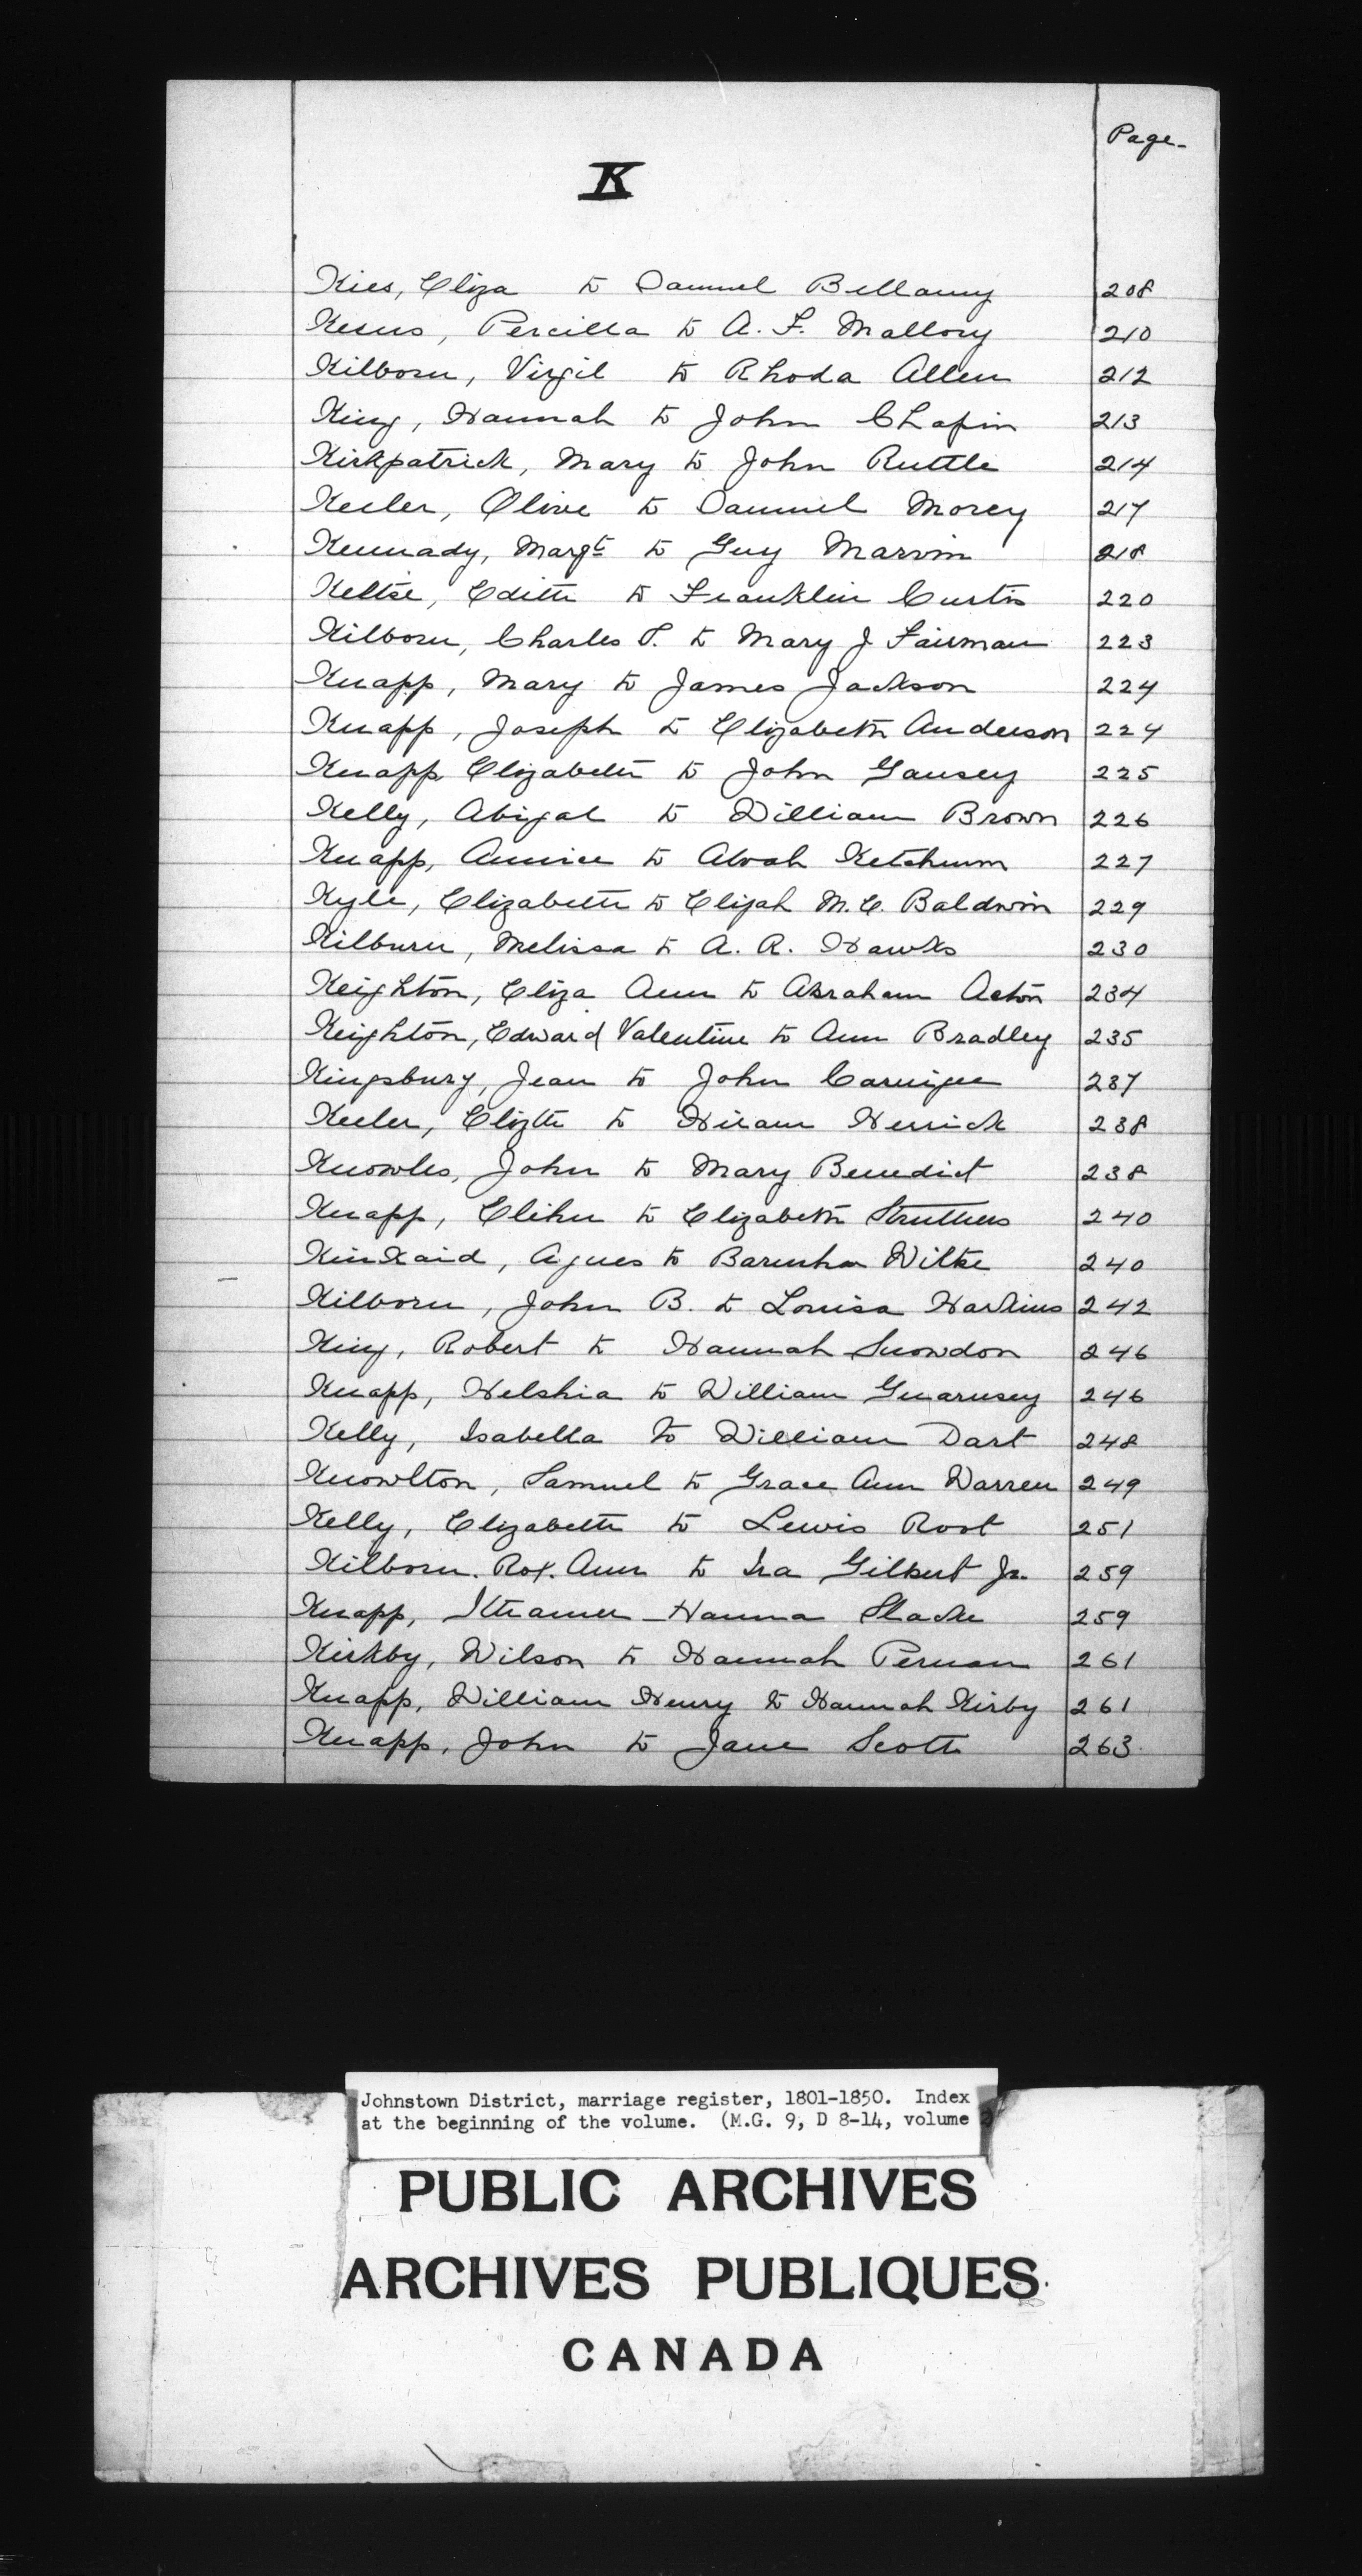 Page.
K
Kies, Eliza to Samuel Bellamy 208
Kesus, Percilla to A. F. Mallory 210
Kilborn, Virgil to Rhoda Allen 212
King, Hannah to John Chapin 213
Kirkpatrick, Mary to John Ruttle 214
Keeler, Olive to Samuel Morey 217
Kennady, Margt to Guy Marvin 218
Keltse, Edith to Franklin Curtis 220
Kilborn, Charles T. to Mary J Fairman 223
Knapp, Mary to James Jackson 224
Knapp, Joseph to Elizabeth Anderson 224
Knapp, Elizabeth to John Gansey 225
Kelly, Abigal to William Brown 226
Knapp, Annice to Alvah Ketchum 227
Kyle, Elizabeth to Elijah M. C. Baldwin 229
Kilburn, Melissa to A. R. Hawks 230
Keighton, Eliza Ann to Abraham Acton 234
Keighton, Edward Valentine to Ann Bradley 235
Kingsbury, Jean to John 237
Keeler, Elizth to Hiram Herrick 238
Knowles, John to Mary Benedict 238
Knapp, Elihu to Elizabeth Struthers 240
Kinkaid, Agnes to Wiltse 240
Kilborn, John B. to Louisa Harkins 242
King, Robert to Hannah Snowdon 246
Knapp, Helshia to William Guarnsey 246
Kelly, Isabella to William Dart 248
Knowlton, Samuel to Grace Ann Warren 249
Kelly, Elizabeth to Lewis Root 251
Kilborn. Rox. Ann to Ira Gilbert Jr. 259
Knapp, Hanna Slack 259
Kirkby, Wilson to Hannah Pernam 261
Knapp, William Henry to Hannah Kirby 261
Knapp, John to Jane Scott 263
Johnstown District, marriage register, 1801-1850. Index
at the beginning of the volume. (M.G. 9, D 8-14, volume 2
PUBLIC ARCHIVES
ARCHIVES PUBLIQUES
CANADA